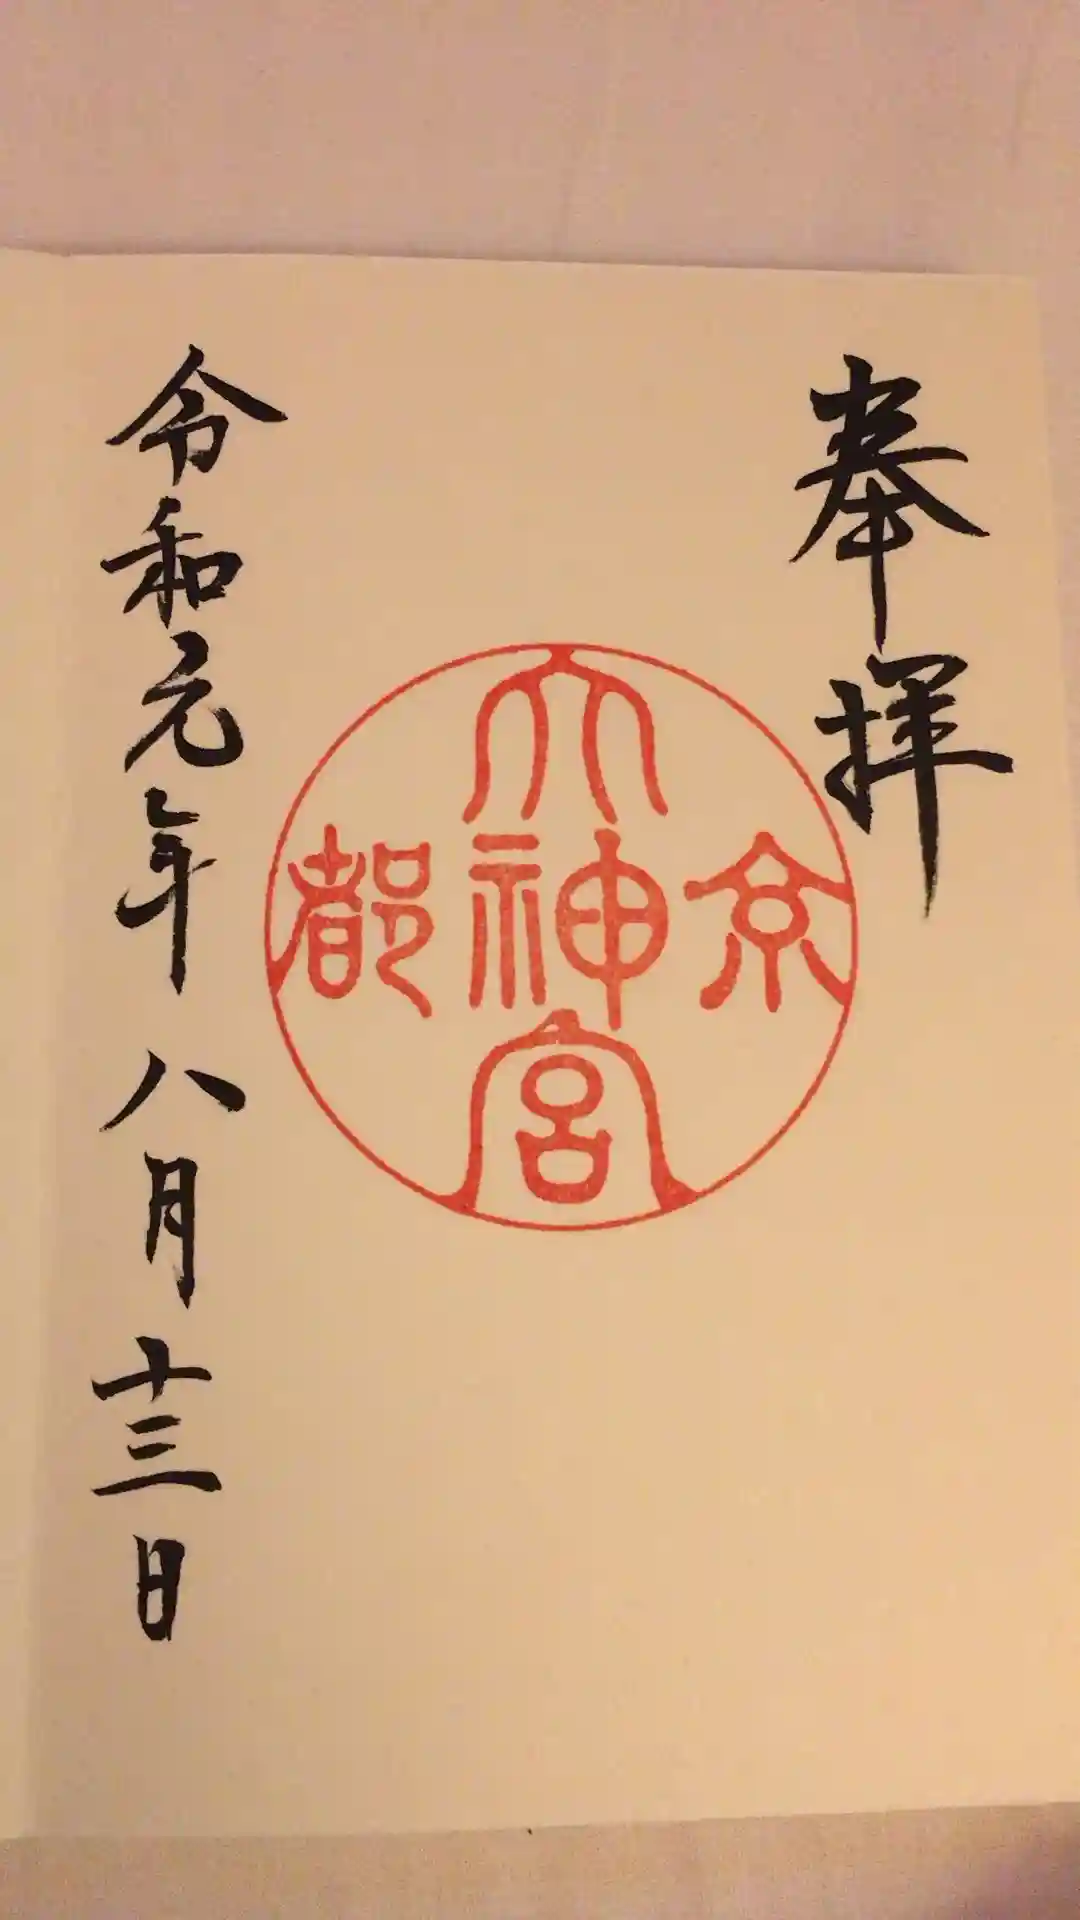 奉拝
京都
大神宮
令和元年八月十三日